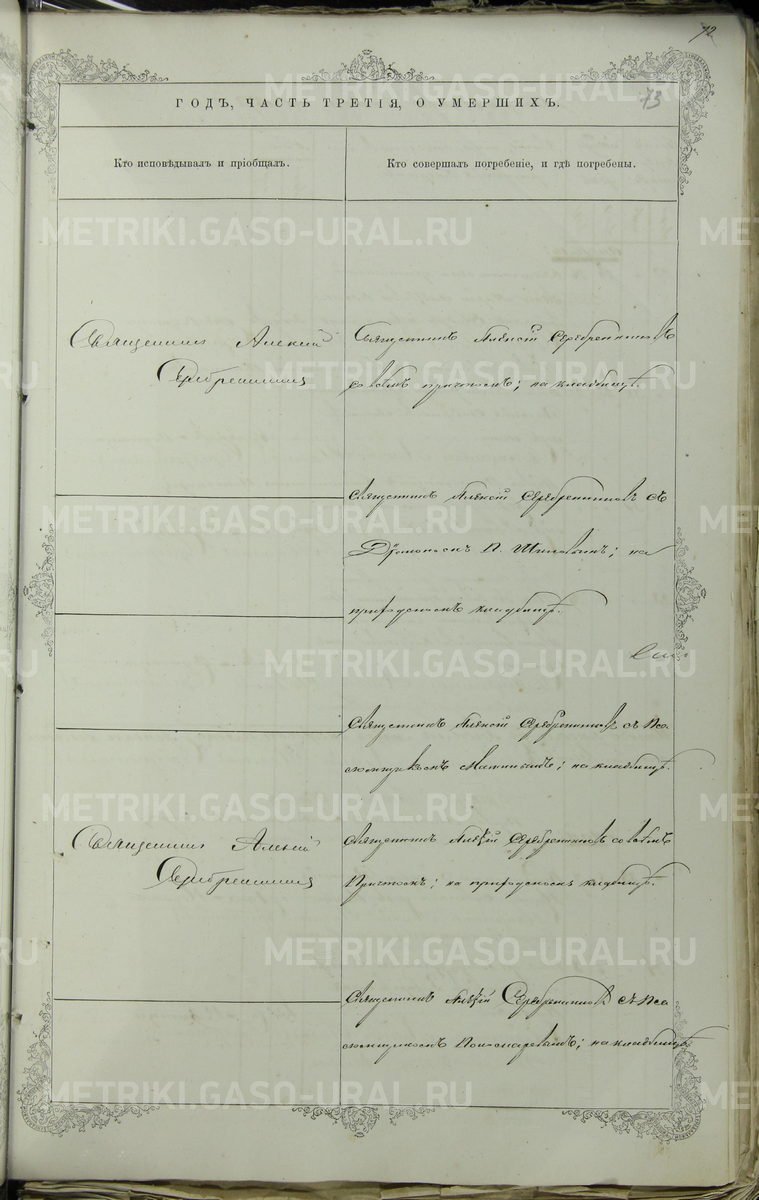 72
73
ГОДЪ, ЧАСТЬ ТРЕТІЯ, О УМЕРШИХЪ.
Кто исповѣдывалъ и пріобщалъ.
Кто совершалъ погребеніе, и гдѣ погребены.
Священникъ Алексий
Серебренниковъ
Священникъ Алексій Серебренниковъ
со всѣмъ причтомъ; на кладбищѣ.
Священникъ Алексій Серебренниковъ съ
Діакономъ П. ; на
приходскомъ кладбищѣ.
Священникъ Алексій Серебренниковъ съ Пса
ломщикомъ ; на кладбищѣ.
Священникъ Алексій
Серебренниковъ
Священникъ Алексій Серебренниковъ со всѣмъ
Причтомъ; на приходскомъ кладбищѣ.
Священникъ Алексій Серебренниковъ съ Пса
ломщикомъ Пономаревымъ; на кладбищѣ.
METRIKI.GASO-URAL.RU